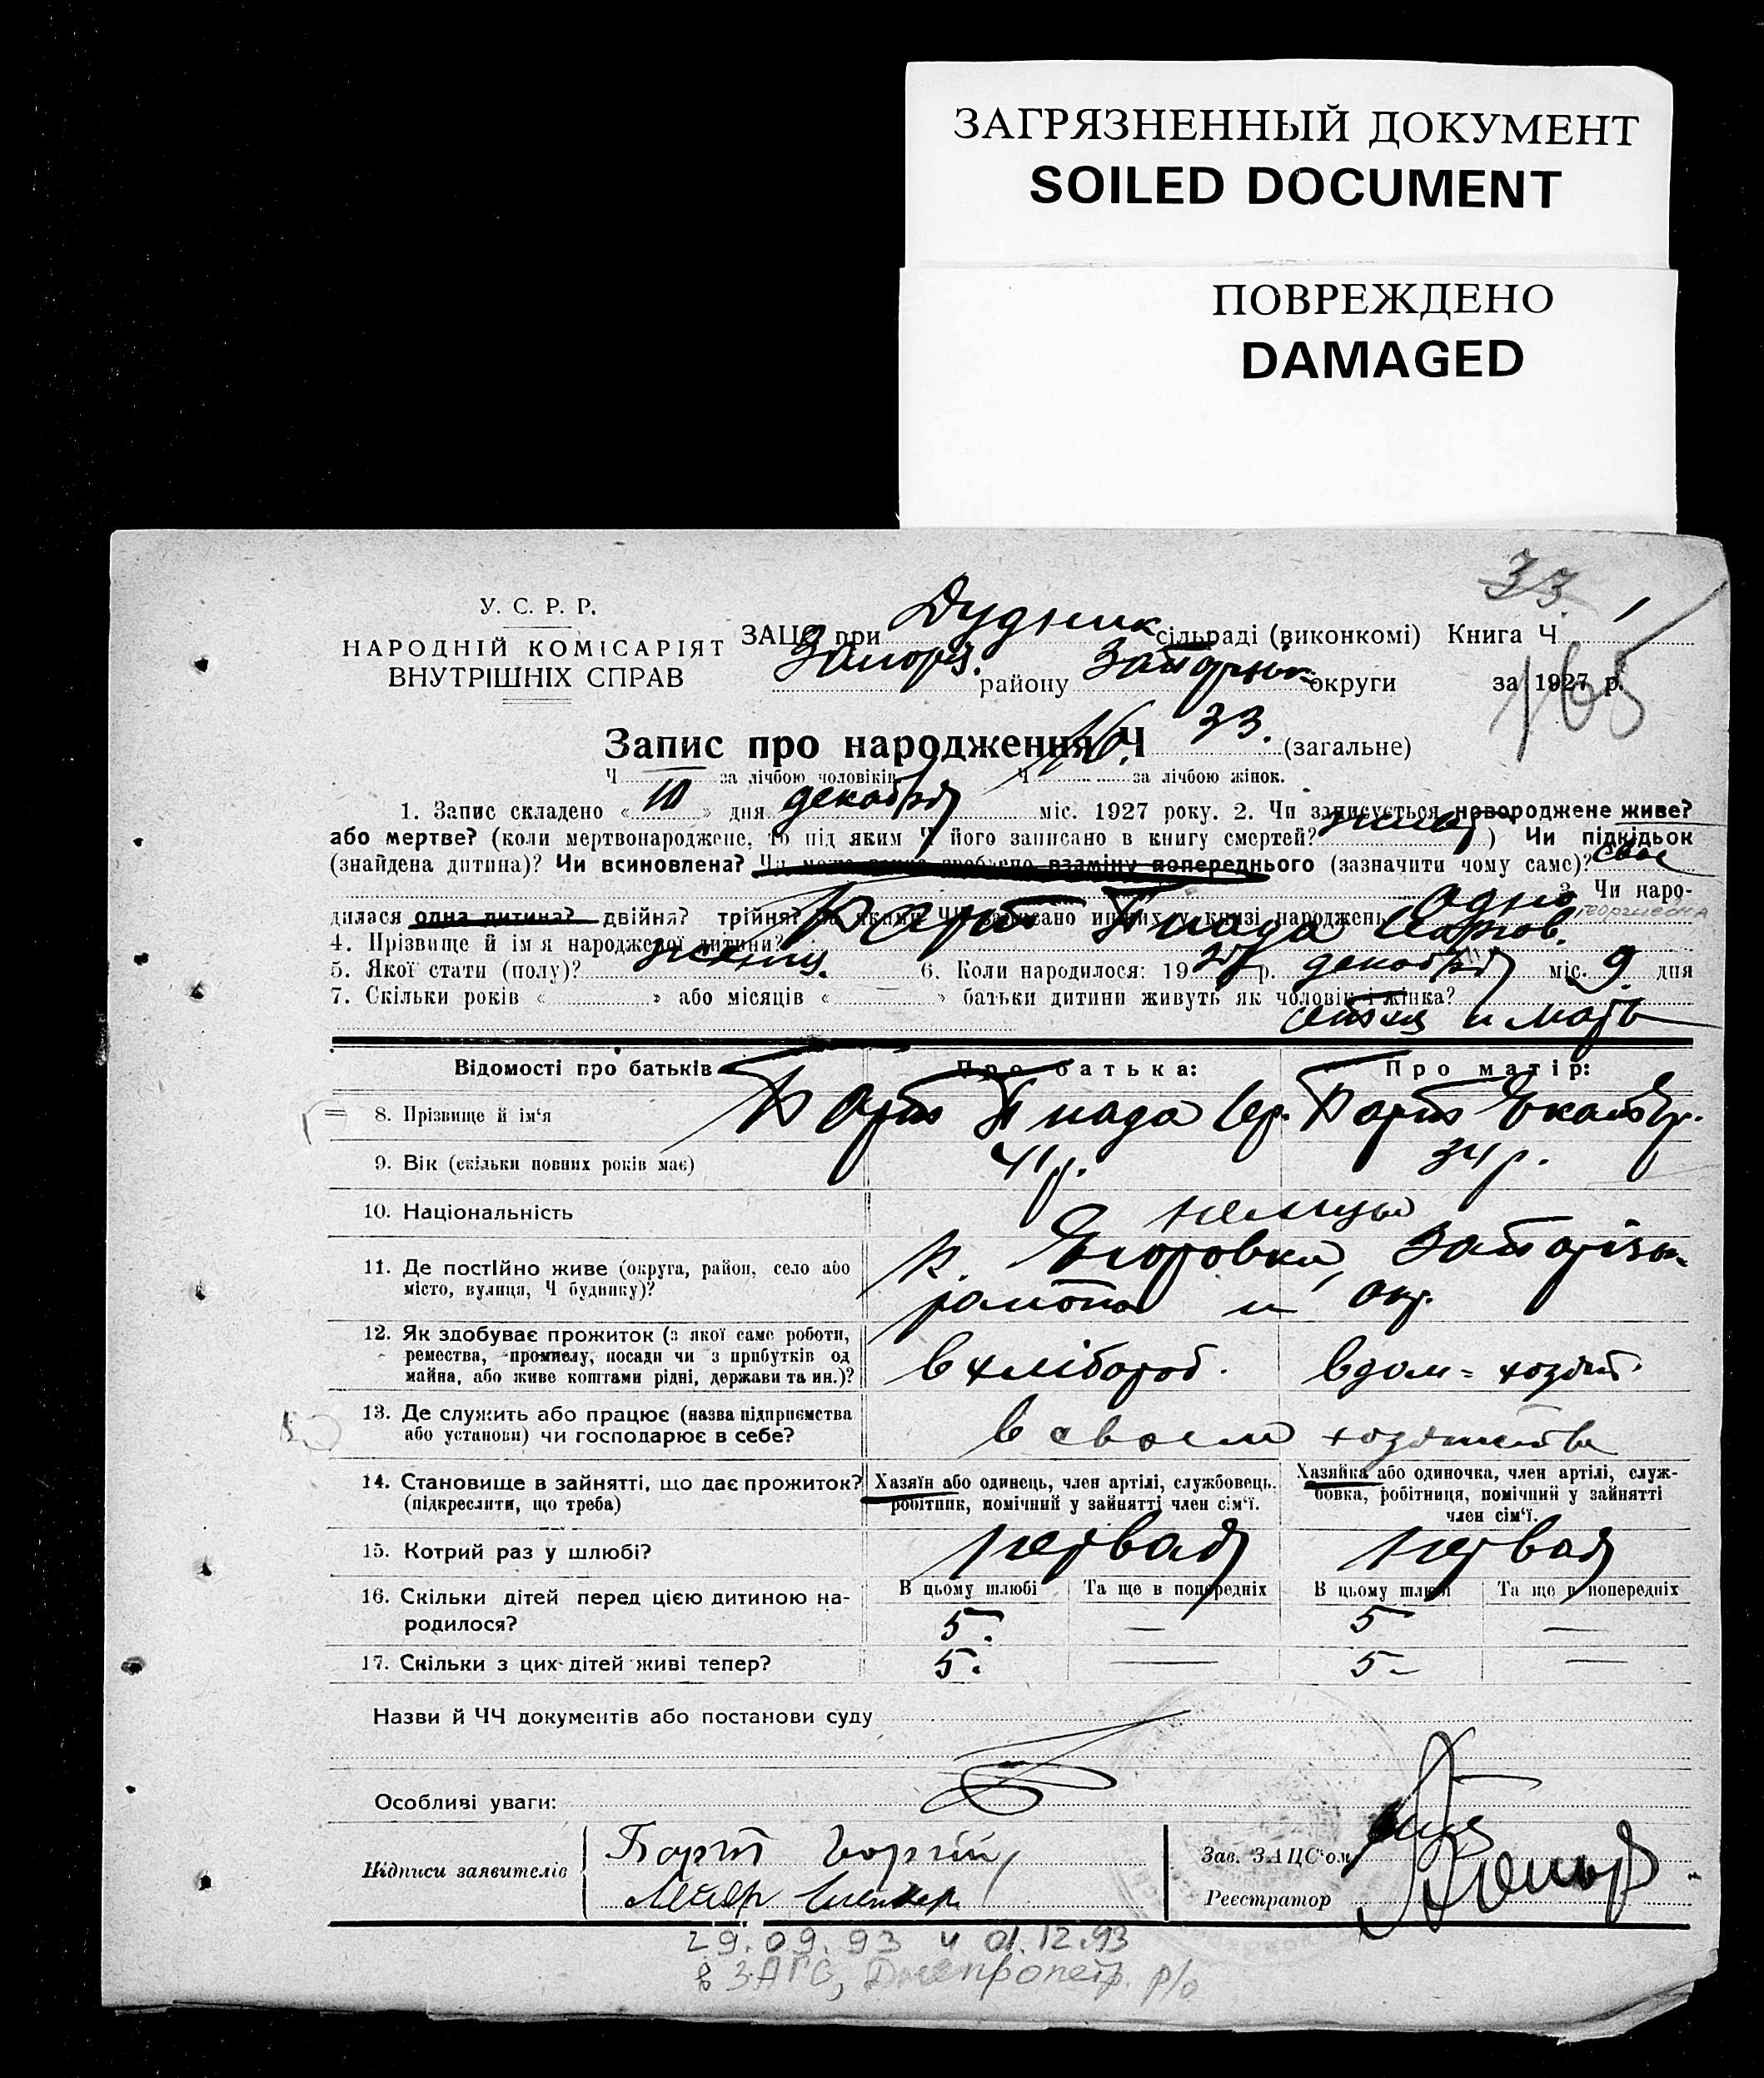 ЗАГРЯЗНЕННЫЙ ДОКУМЕНТ
SOILED DOCUMENT
ПОВРЕЖДЕНО
DAMAGED
33.
У. С. Р. Р.
НАРОДНІЙ КОМІСАРІЯТ
ВНУТРІШНІХ СПРАВ
ЗАЦС при Дудник сільраді (виконкомі) Книга Ч 1
Запорз. району Запорізьк округи за 1927 р.
165
Запис про народження Ч 33. (загальне)
Ч — за лічбою чоловіків Ч 16. за лічбою жінок.
1. Запис складено « 10 » дня декабря міс. 1927 року. 2. Чи записується новороджене живе?
або мертве? (коли мертвонароджене, то під яким Ч його записано в книгу смертей? ) Чи підкідьок
(знайдена дитина)? Чи всиновлена? взаміну попереднього (зазначити чому саме)? свое
3. Чи наро-
дилася одна дитина? двійня? трійня? За якими ЧЧ записано инших у книзі народжень одно
Георгиевна
4. Прізвище й ім'я народженої дитини? Барт
5. Якої стати (полу)? женщ. 6. Коли народилося: 1927 р. декабря міс. 9 дня
7. Скільки років « » або місяців « — » батьки дитини живуть як чоловік і жінка?
и мать
Відомості про батьків Про батька: Про матір:
8. Прізвище й ім'я Барт Барт Екатер.
9. Вік (скільки повних років має) 41 р. 34 р.
10. Національність немцы
11. Де постійно живе (округа, район, село або
місто, вулиця, Ч будинку)?
к. Егоровка, Запорізьк.
района и окр.
12. Як здобуває прожиток (з якої саме роботи,
ремества, промислу, посади чи з прибутків од
майна, або живе коштами рідні, держави та ин.)?
в хлібороб. в дом = хозяй.
13. Де служить або працює (назва підприємства
або установи) чи господарює в себе?
в своем хозяйстве
14. Становище в зайнятті, що дає прожиток?
(підкреслити, що треба)
Хазяїн або одинець, член артілі, службовець.
робітник, помічний у зайнятті член сім'ї.
Хазяйка або одиночка, член артілі, служ-
бовка, робітниця, помічний у зайнятті
член сім'ї.
15. Котрий раз у шлюбі? первый первый
В цьому шлюбі Та ще в попередніх В цьому шлюбі Та ще в попередніх
16. Скільки дітей перед цією дитиною на-
родилося?
5. — 5 —
17. Скільки з цих дітей живі тепер? 5. — 5 — —
Назви й ЧЧ документів або постанови суду
Особливі уваги:
Підписи заявителів
Барт Георгій
Зав. ЗАЦС'ом
Реєстратор
29.09.93 и 01.12.93
в ЗАГС, Днепропетр. р/о